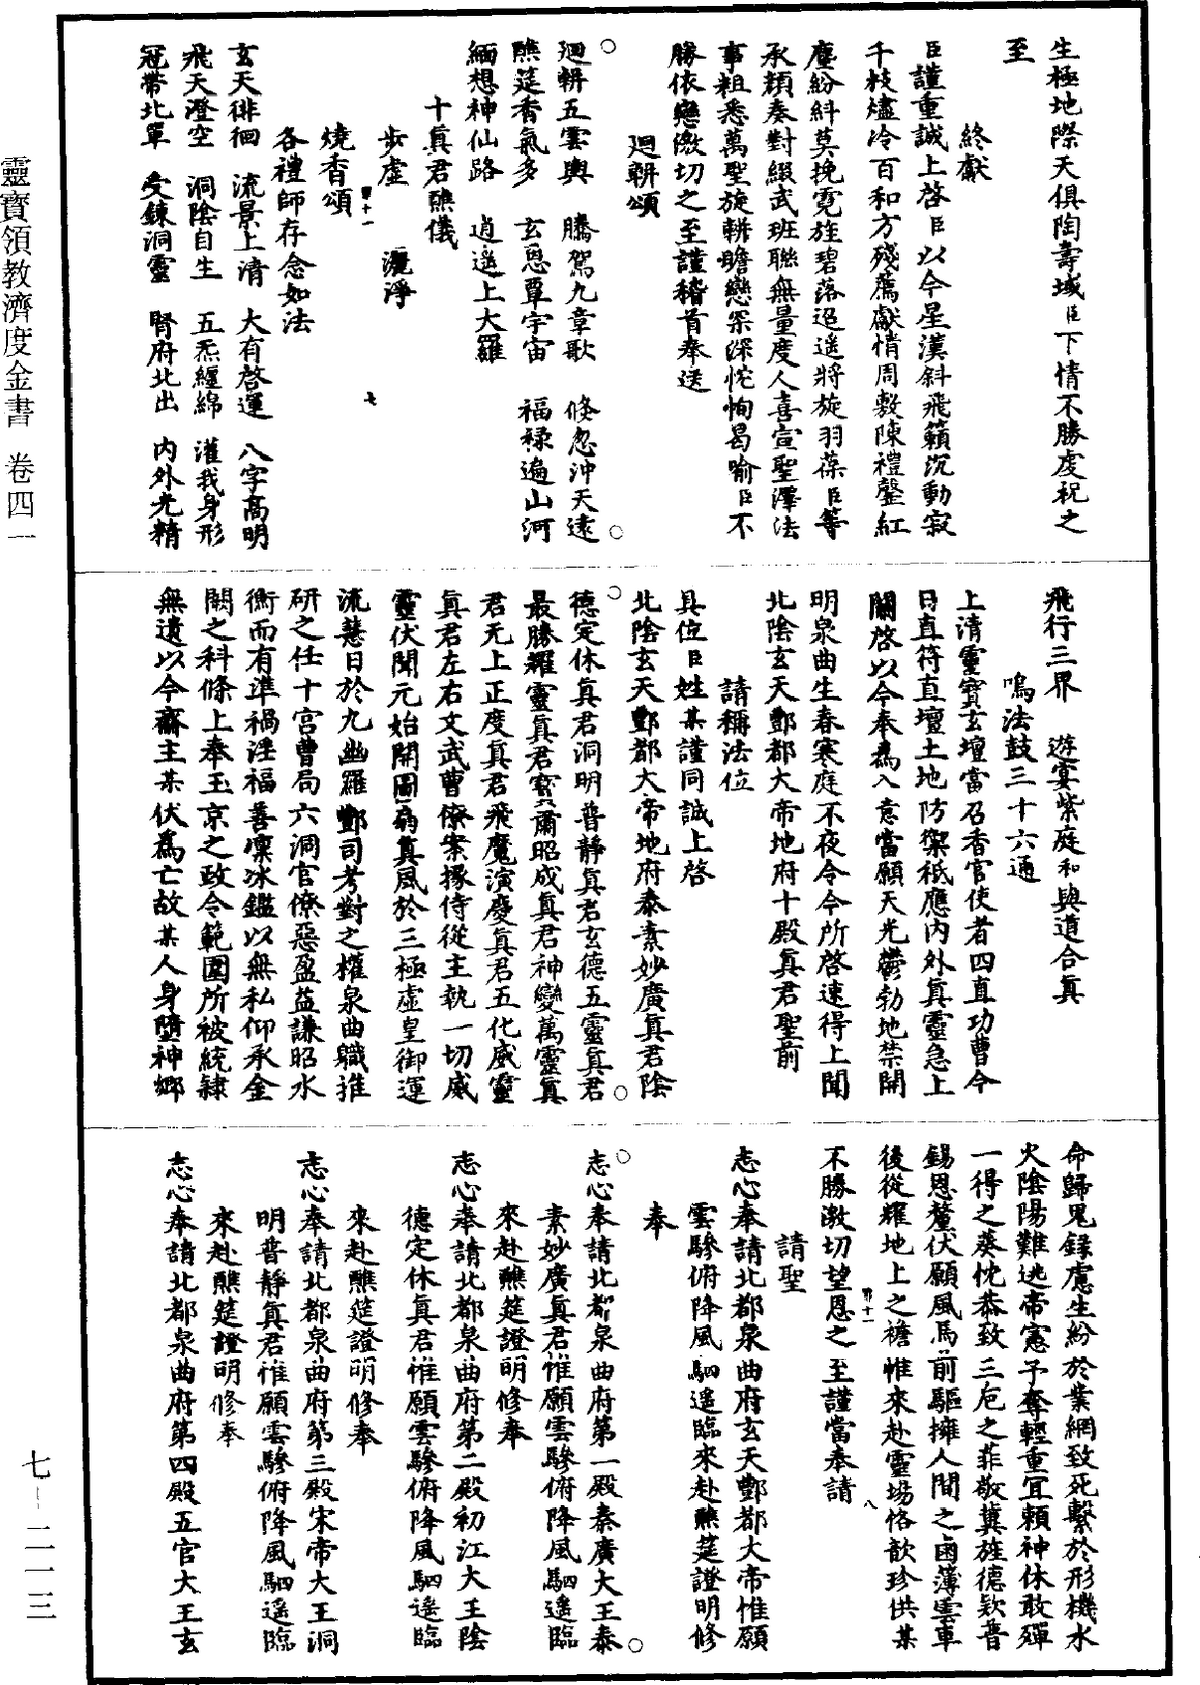 生極地際天俱陶壽域臣下情不勝虔祝之
至
終獻
臣謹重誠上啓臣以今星漢斜飛籟沉動寂
千枝燼冷百和方殘薦獻情周敷陳禮罄紅
塵紛糾莫挽霓旌碧落迢遥將旋羽葆臣等
承顏奏對綴武班聯無量度人喜宣聖澤法
事粗悉萬聖旋軿瞻戀罙深恍恂曷喻臣不
勝依戀激切之至謹稽首奉送
迴軿頌
迴軿五雲輿　騰駕九章歌　倐忽沖天遠
醮筵香氣多　玄恩覃宇宙　福禄遍山河
緬想神仙路　逍遥上大羅
十真君醮儀
步虛　灑淨
燒香頌
各禮師存念如法
玄天徘徊　流景上清　大有啓運　八字高明
飛天澄空　洞陰自生　五炁纏綿　灌我身形
冠帶北單　受鍊洞靈　腎府北出　内外光精
飛行三界　遊宴紫庭和與道合真
鳴法鼓三十六通
上清靈寶玄壇當召香官使者四直功曹今
日直符直壇土地防禦祇應内外真靈急上
關啓以今奉爲入意當願天光鬱勃地禁開
明泉曲生春寒庭不夜令今所啓速得上聞
北陰玄天酆都大帝地府十殿真君聖前
請稱法位
具位臣姓某謹同誠上啓
北陰玄天酆都大帝地府泰素妙廣真君陰
德定休真君洞明普靜真君玄德五靈真君
最勝耀靈真君寳肅昭成真君神變萬靈真
君无上正度真君飛魔演慶真君五化威靈
真君左右文武曹僚案掾侍從主執一切威
靈伏聞元始開圖扇真風於三極虛皇御運
流慧日於九幽羅酆司考對之權泉曲職推
研之任十宫曹局六洞官僚惡盈益謙昭水
衡而有準禍淫福善凛冰鑑以無私仰承金
闕之科條上奉玉京之政令範圍所被統隷
無遺以今齋主某伏爲亡故某人身墮神鄉
命歸鬼録慮生紛於業網致死繫於形機水
火陰陽難逃帝憲予奪輕重宜頼神休敢殫
一得之葵忱恭致三巵之菲敬冀旌德欵普
錫恩釐伏願風馬前驅擁人間之鹵簿雲車
後從耀地上之襜帷來赴靈場恪歆珍供某
不勝激切望恩之至謹當奉請
請聖
志心奉請北都泉曲府玄天酆都大帝惟願
雲驂俯降風駟遥臨來赴醮筵證明修
奉
志心奉請北都泉曲府第一殿秦廣大王泰
素妙廣真君惟願雲驂俯降風駟遥臨
來赴醮筵證明修奉
志心奉請北都泉曲府第二殿初江大王陰
德定休真君惟願雲驂俯降風駟遥臨
來赴醮筵證明修奉
志心奉請北都泉曲府第三殿宋帝大王洞
明普靜真君惟願雲驂俯降風駟遥臨
來赴醮筵證明修奉
志心奉請北都泉曲府第四殿五官大王玄
靈寶領教濟度金書　卷四一
七—二一三